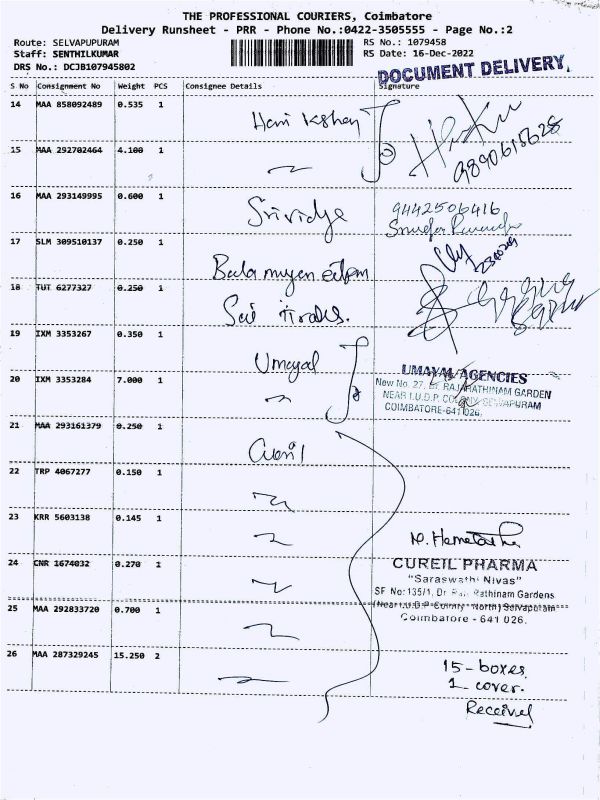 THE PROFESSIONAL COURIERS, Coimbatore
Delivery Runsheet - PRR - Phone No.:0422-3505555 - Page No.:2
Route: SELVAPUPURAM RS No.: 1079458
Staff: SENTHILKUMAR RS Date: 16-Dec-2022
DRS No.: DCJB107945802
DOCUMENT DELIVERY,
S No Consignment No Weight PCS Consignee Details Signature
14 MAA 858092489 0.535 1 Hari Kshay
9890615628
15 MAA 292702464 4.100 1
16 MAA 293149995 0.600 1 Srividya 9442506416
17 SLM 309510137 0.250 1
18 TUT 6277327 0.250 1
Sai
19 IXM 3353267 0.350 1 Umayal
UMAYAL AGENCIES
20 IXM 3353284 7.000 1
New No. 27, Dr. RAJARATHINAM GARDEN
NEAR I.U.D.P. COLONY, SELVAPURAM
COIMBATORE-641 026.
21 MAA 293161379 0.250 1
22 TRP 4067277 0.150 1
23 KRR 5603138 0.145 1
24 CNR 1674032 0.270 1
CUREIL PHARMA
"Saraswathi Nivas"
SF No:135/1, Dr. Raja Rathinam Gardens
25 MAA 292833720 0.700 1
(Near I.U.D.P. Colony North) Selvapuram
Coimbatore - 641 026.
26 MAA 287329245 15.250 2
15-boxes
1 cover.
Received